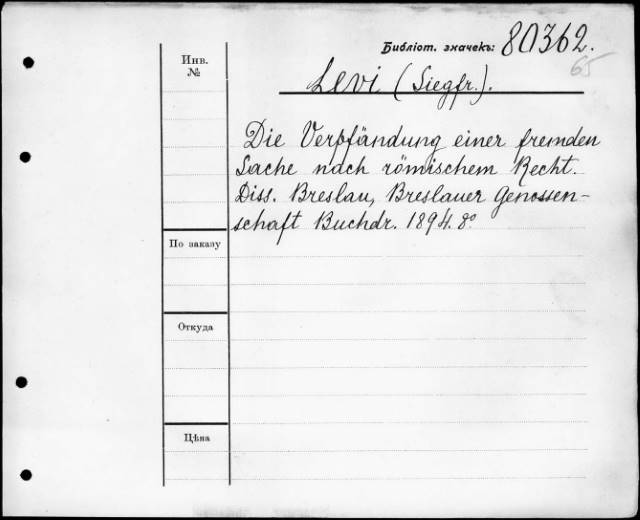 Библіот. значекъ: 80362.
65
Levi (Siegfr.).
Инв.
№
Die Verpfändung einer fremden
Sache nach römischem Recht.
Diss. Breslau, Breslauer Genossen-
schaft Buchdr. 1894. 8°
По заказу
Откуда
Цѣна